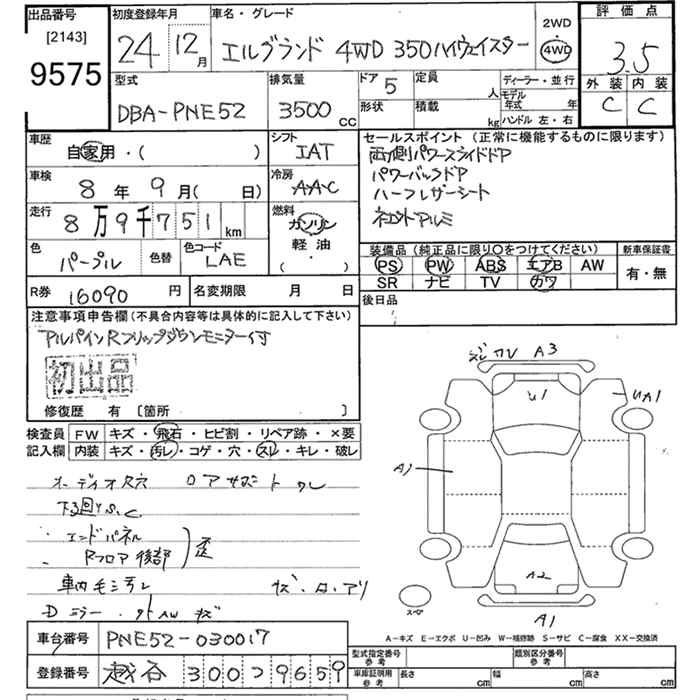 出品番号
[2143]
9575
初度登録年月
24 12月
車名・グレード
エルグランド 4WD 350ハイウェイスター
2WD
・
4WD
評価点
3.5
外装 内装
C C
型式
DBA-PNE52
排気量
3500 CC
ドア 5
形状
定員 人
積載 kg
ディーラー・並行
モデル年式 年
ハンドル 左・右
車歴
自家用・( )
シフト
IAT
車検
8年 9月( 日)
冷房
AAC
走行
8万9千751km
燃料
ガソリン
軽油
( )
色
パープル
色替
色コード
LAE
R券 16090円
名変期限 月 日
セールスポイント (正常に機能するものに限ります)
両側パワースライドドア
パワーバックドア
ハーフレザーシート
装備品(純正品に限り○をつけてください)
PS PW ABS エアB AW
SR ナビ TV カワ
新車保証書
有・無
後日品
注意事項申告欄(不具合内容等は具体的に記入して下さい)
アルパインRフリップダウンモニター付
初出品
修復歴 有 [箇所 ]
検査員記入欄
FW キズ・飛石・ヒビ割・リペア跡・×要
内装 キズ・汚レ・コゲ・穴・スレ・キレ・破レ
オーディオR穴
下回りS.C.
エンドパネル
Rフロア後部
歪
Dミラー
A3
U1
UA1
A1
A2
A1
スペア
A-キズ E-エクボ U-凹み W-補修跡 S-サビ C-腐食 XX-交換済
車台番号 PNE52-030017
登録番号 越谷 300 ツ 9659
型式指定番号
参考
類別区分番号
参考
車庫証明用
参考
長さ cm
幅 cm
高さ cm